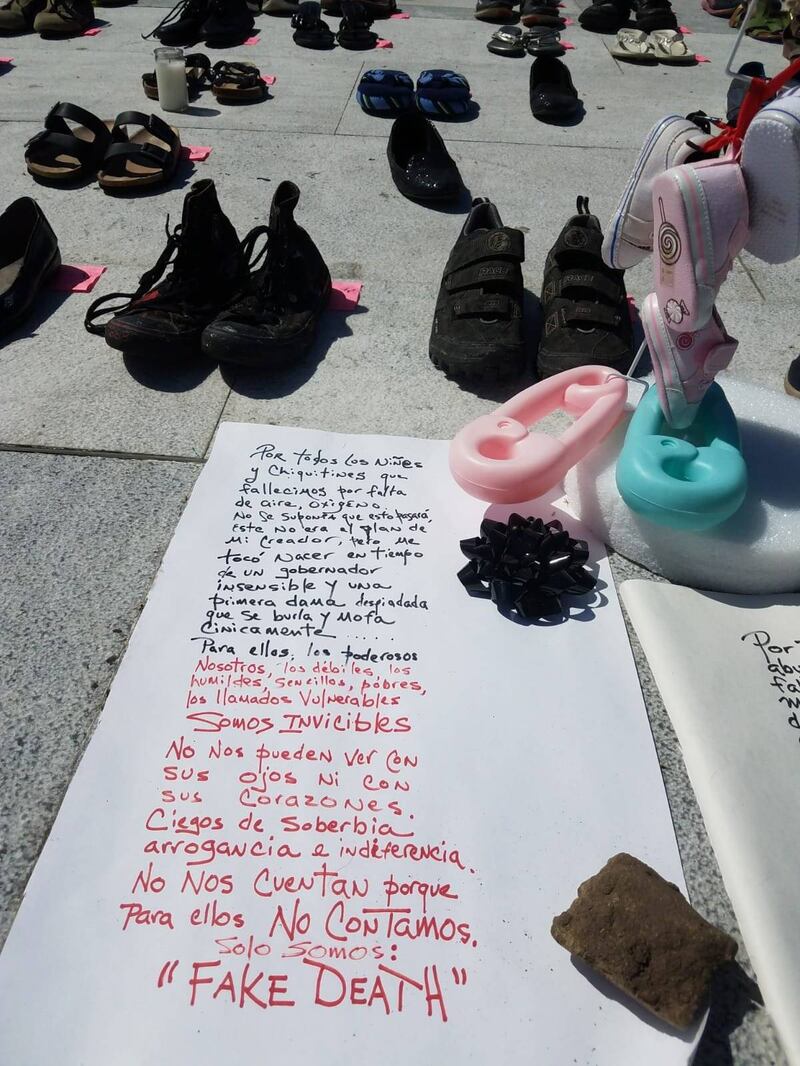 Por todos los Niñ@s
y Chiquitines que
fallecimos por falta
de aire, oxigeno
No se suponía que esto pasará,
Este No era el plan de
Mi Creador, pero me
tocó Nacer en tiempo
de un gobernador
insensible y una
primera dama despiadada
que se burla y mofa
Cinicamente ......
Para ellos, los poderosos
Nosotros, los débiles, los
humildes, sencillos, pobres,
los llamados Vulnerables
Somos INVICIBLES
No Nos pueden ver con
sus ojos Ni con
sus Corazones.
Ciegos de Soberbia
arrogancia e indeferencia.
No Nos Cuentan porque
Para ellos No CONTAMOS.
Solo Somos:
"FAKE DEATH"
RACE
RACE
Por